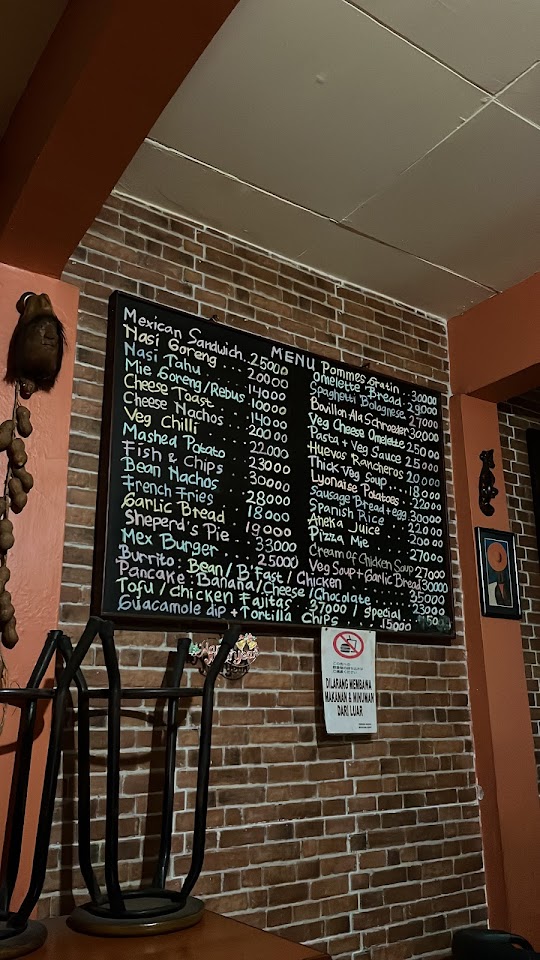 MENU
Mexican Sandwich . 25000
Nasi Goreng . . . 20000
Nasi Tahu . . . 14000
Mie Goreng/Rebus 10000
Cheese Toast . . . 14000
Cheese Nachos . . 20000
Veg Chilli . . . 22000
Mashed Potato . . 23000
Fish & Chips . . . 30000
Bean Nachos . . . 28000
French Fries . . . 18000
Garlic Bread . . . 19000
Sheperd's Pie . . . 33000
Mex Burger . . . 25000
Pommes Gratin . . 30000
Omelette Bread . . 29000
Spaghetti Bolagnese 27000
Bouillon Ala Schroeder 30000
Veg Cheese Omelette 25000
Pasta + Veg Sauce 25000
Huevos Rancheros 20000
Thick Veg Soup . . 18000
Lyonaise Potatoes . . 22000
Sausage Bread + egg 30000
Spanish Rice . . .
Aneka Juice . . .
Pizza Mie . . . 27000
Cream of Chicken Soup 27000
Veg Soup + Garlic Bread 30000
Burrito : Bean / B'Fast / Chicken 35000
Pancake : Banana/Cheese/Chocolate 23000
Tofu / Chicken Fajitas 37000 / Special
Guacamole dip + Tortilla Chips 15000
DILARANG MEMBAWA
MAKANAN & MINUMAN
DARI LUAR